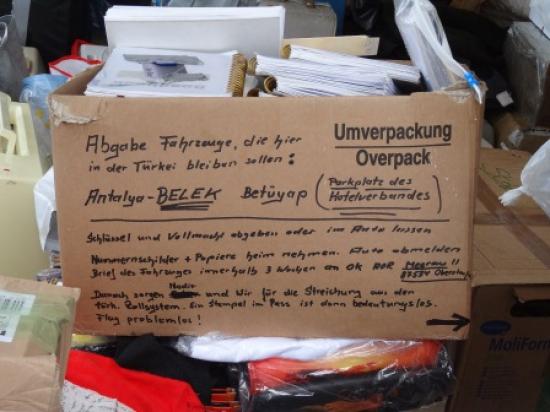 Umverpackung
Overpack
Abgabe Fahrzeuge, die hier
in der Türkei bleiben sollen:
Antalya-BELEK Betüyap (Parkplatz des
Hotelverbandes)
Schlüssel und Vollmacht abgeben oder im Auto lassen
Nummernschilder + Papiere heim nehmen. Auto abmelden
Brief des Fahrzeuges innerhalb 3 Wochen an OK AOR Meerau 11
87534 Oberstauf
Danach sorgen Nadir und Wir für die Streichung aus den
türk. Zollsystem. Ein Stempel im Pass ist dann bedeutungslos.
Flug problemlos!
MoliForm